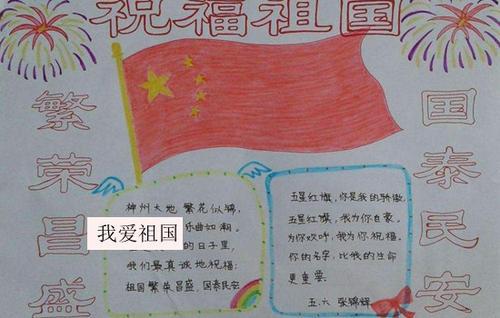 祝福祖国
繁荣昌盛
国泰民安
神州大地 繁花似锦,
乐曲如潮。
我爱祖国
的日子里,
我们最真诚地祝福:
祖国繁荣昌盛,国泰民安
五星红旗,你是我的骄傲,
五星红旗,我为你自豪。
为你欢呼,我为你祝福。
你的名字,比我的生命
更重要。
五.六 张锦辉